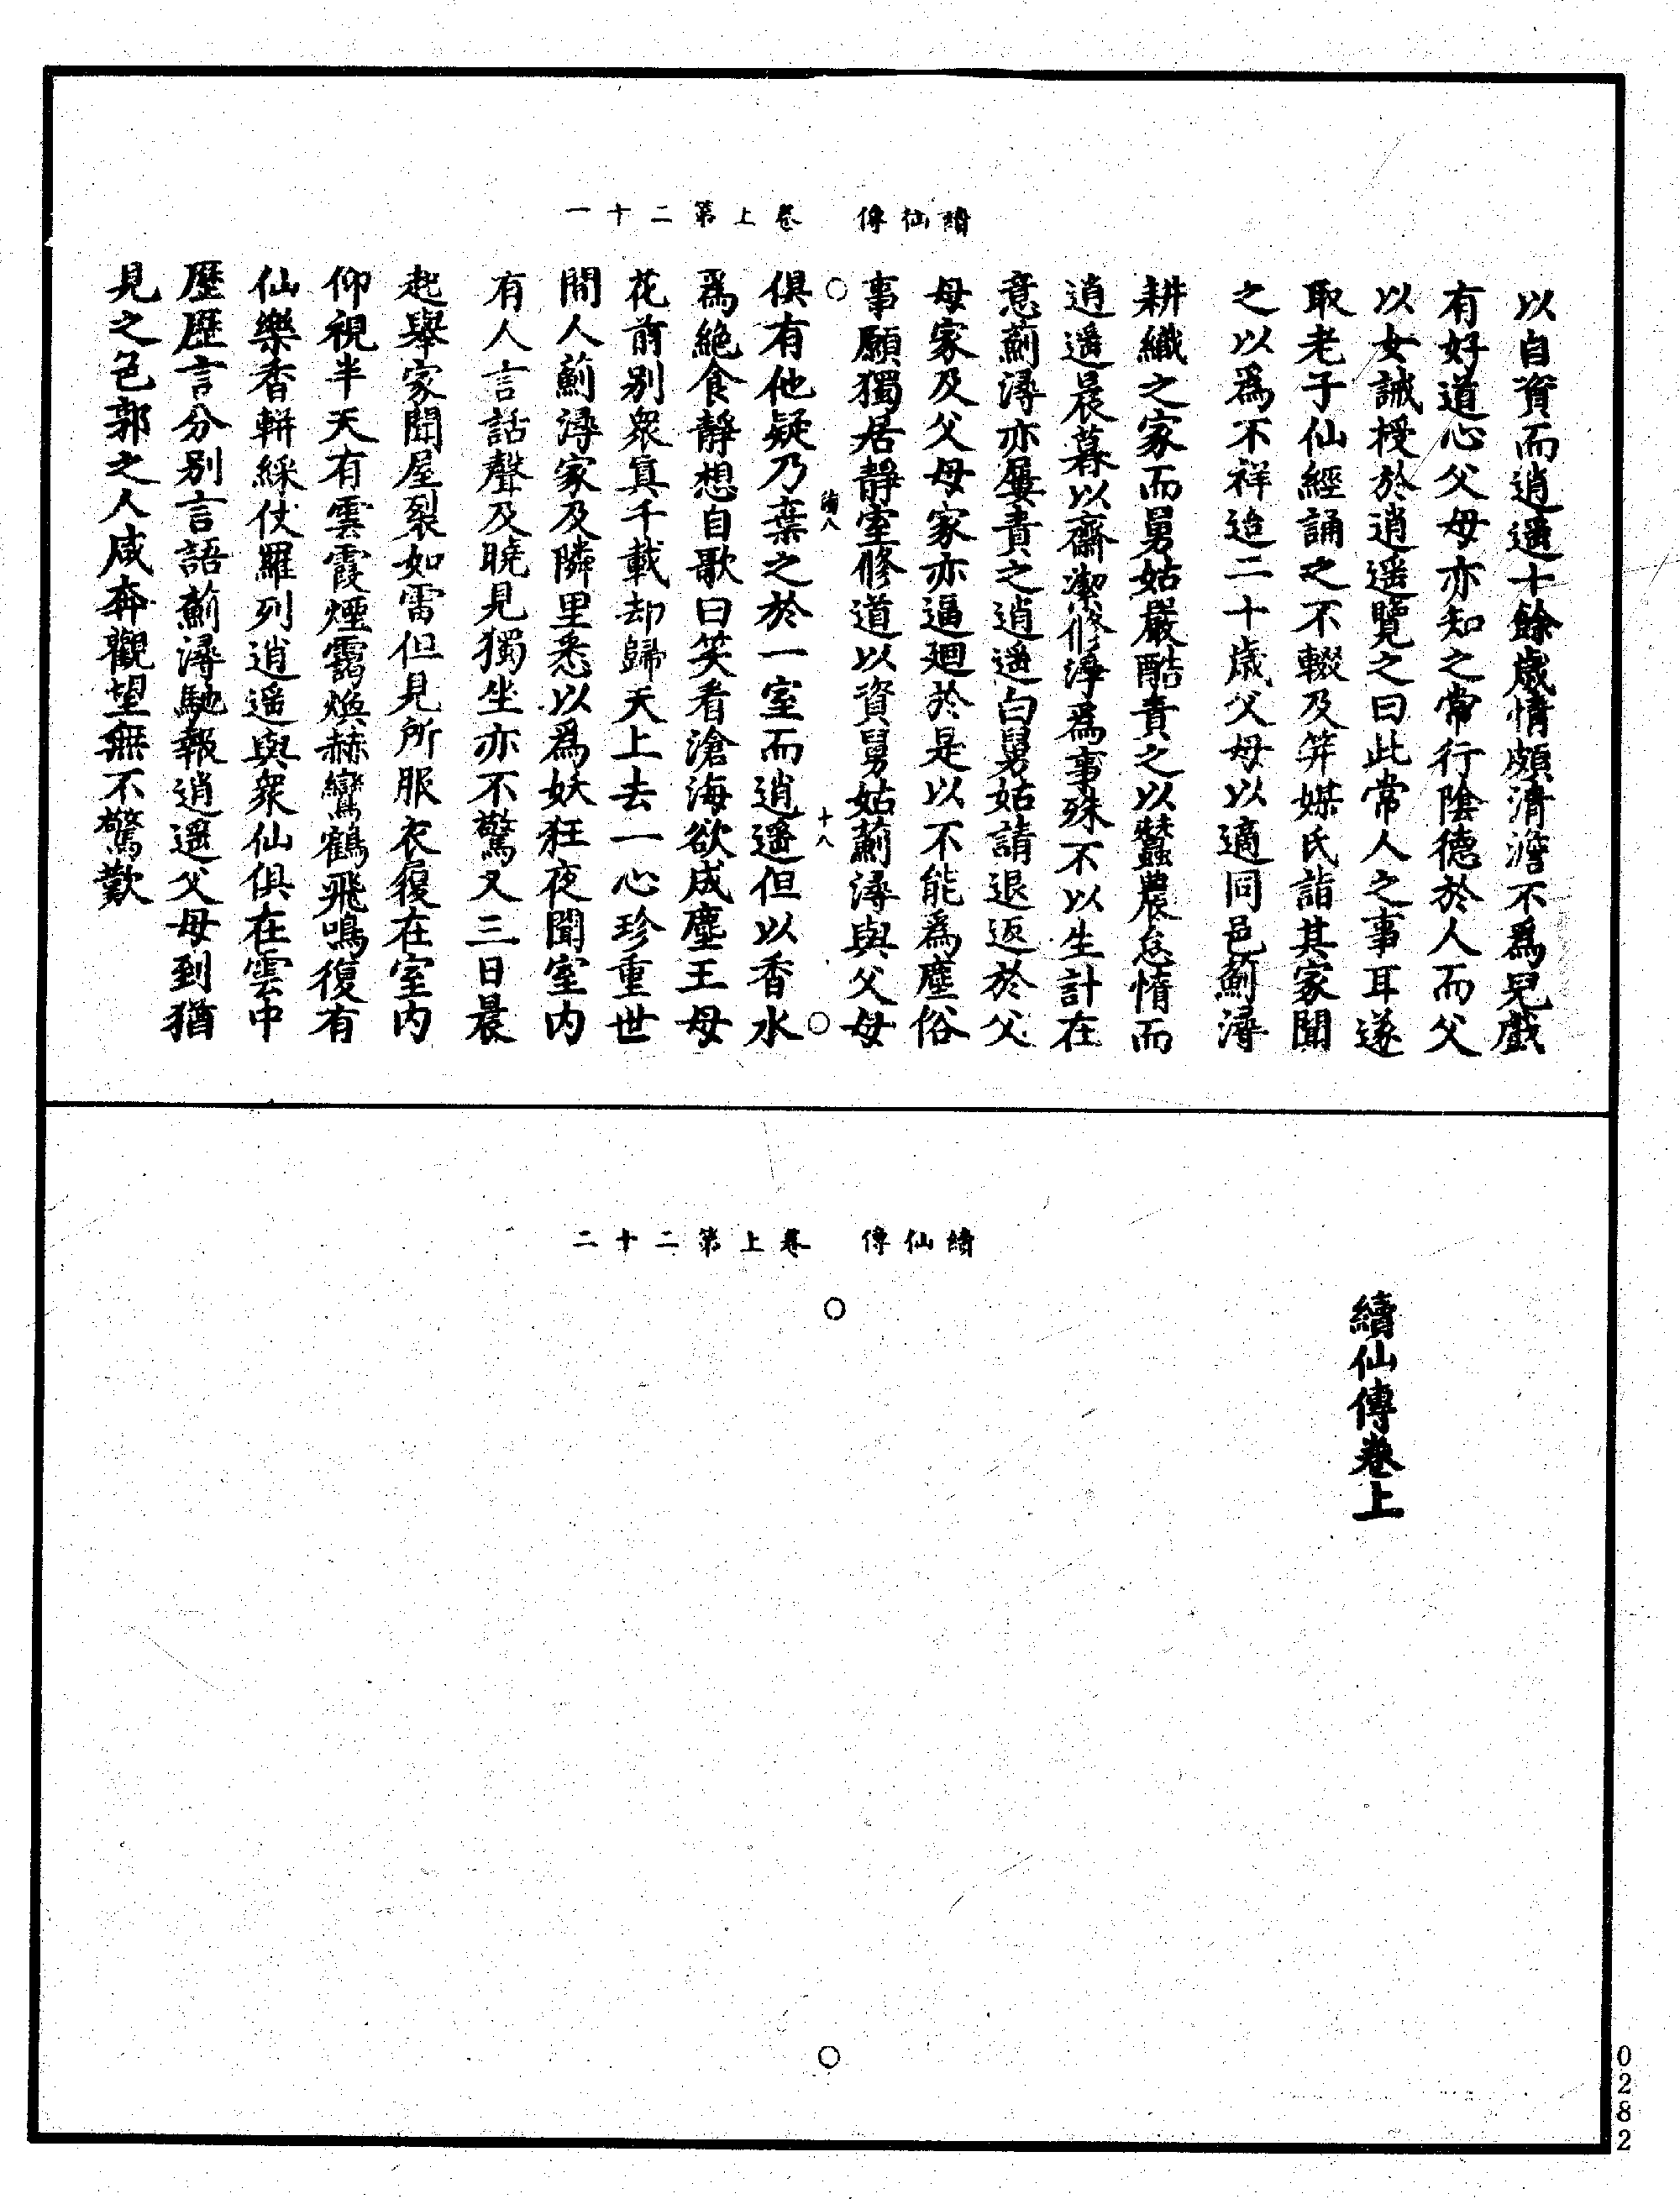 續仙傳　卷上第二十一
以自資而逍遥十餘歲情頗清澹不爲兒戲
有好道心父母亦知之常行陰德於人而父
以女誡授於逍遥覽之曰此常人之事耳遂
取老子仙經誦之不輟及笄媒氏詣其家聞
之以爲不祥迨二十歲父母以適同邑蒯潯
耕織之家而舅姑嚴酷責之以蠶農怠惰而
逍遥晨暮以齋潔修淨爲事殊不以生計在
意蒯潯亦屢責之逍遥白舅姑請退返於父
母家及父母家亦逼迴於是以不能爲塵俗
事願獨居靜室修道以資舅姑蒯潯與父母
十八
俱有他疑乃棄之於一室而逍遥但以香水
爲絶食靜想自歌曰笑看滄海欲成塵王母
花前别衆真千載却歸天上去一心珍重世
間人蒯潯家及隣里悉以爲妖狂夜聞室内
有人言話聲及曉見獨坐亦不驚又三日晨
起舉家聞屋裂如雷但見所服衣履在室内
仰視半天有雲霞煙靄煥赫鸞鶴飛鳴復有
仙樂香軿綵仗羅列逍遥與衆仙俱在雲中
歷歷言分别言語蒯潯馳報逍遥父母到猶
見之邑郭之人咸奔觀望無不驚歎
續仙傳　卷上第二十二
續仙傳卷上
0282